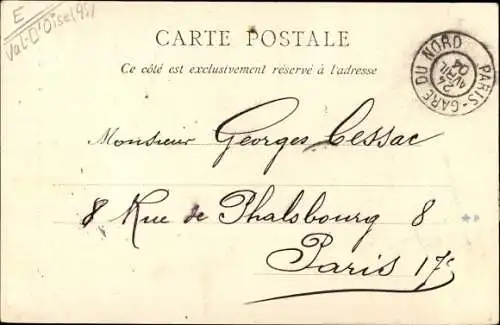 E
Val-D'Oise (95)
CARTE POSTALE
Ce côté est exclusivement réservé à l'adresse
PARIS-GARE DU NORD
24
AVRIL
04
Monsieur Georges Cessac
8 Rue de Phalsbourg 8
Paris 17e